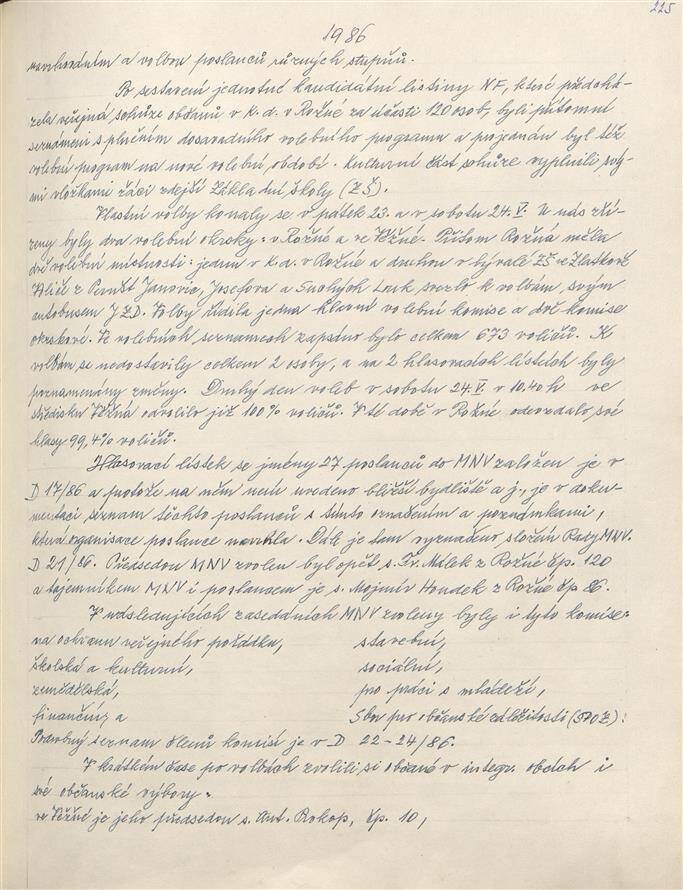 225
1986
navrhováním a volbou poslanců různých stupňů.
Po sestavení jednotné kandidátní listiny NF, které předchá-
zela veřejná schůze občanů v k. d. v Rožné za účasti 120 osob, byli přítomní
seznámeni s plněním dosavadního volebního programu a projednán byl též
volební program na nové volební období. Kulturní část schůze vyplnili svý-
mi vložkami žáci zdejší Základní školy (ZŠ).
Vlastní volby konaly se v pátek 23. a v sobotu 24. V. U nás zří-
zeny byly dva volební okrsky: v Rožné a ve Věžné. Přitom Rožná měla
dvě volební místnosti: jednu v k. d. v Rožné a druhou v bývalé ZŠ ve Zlatkově
Voliče z Pernšt Janovic, Josefova a Suchých Luk svezlo k volbám svým
autobusem JZD. Volby řídila jedna hlavní volební komise a dvě komise
okrskové. Ve volebních seznamech zapsáno bylo celkem 673 voličů. K
volbám se nedostavily celkem 2 osoby, a na 2 hlasovacích lístcích byly
poznamenány změny. Druhý den voleb v sobotu 24. V. v 10,40 h ve
středisku Věžná odvolilo již 100% voličů. V té době v Rožné odevzdalo své
hlasy 99,4% voličů.
Hlasovací lístek se jmény 27 poslanců do MNV založen je v
D 17/86 a protože na něm není uvedeno bližší bydliště a j., je v doku-
mentaci seznam těchto poslanců s tímto označením a poznámkami,
která organisace poslance navrhla. Dále je tam vyznačeno složení Rady MNV.
D 21/86. Předsedou MNV zvolen byl opět s. Fr. Málek z Rožné čp. 120
a tajemníkem MNV i poslancem je s. Mojmír Houdek z Rožné čp 86.
V následujících zasedáních MNV zvoleny byly i tyto komise:
na ochranu veřejného pořádku, stavební,
školská a kulturní, sociální,
zemědělská, pro práci s mládeží,
finanční, a Sbor pro občanské záležitosti (SPOZ):
Podrobný seznam členů komisí je v D 22-24/86.
V krátkém čase po volbách zvolili si občané v integr. obcích i
své občanské výbory:
ve Věžné je jeho předsedou s. Ant. Rokop, čp. 10,